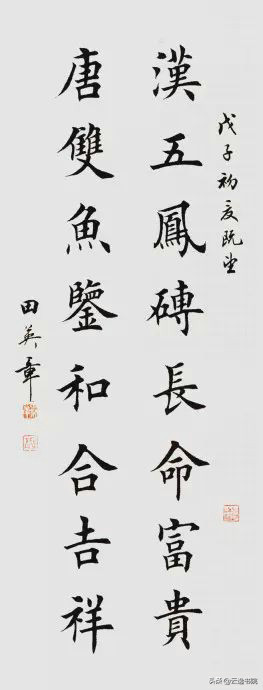 戊子初夏既望
漢五鳳磚長命富貴
唐雙魚鑒和合吉祥
田英章
头条@云逸书院